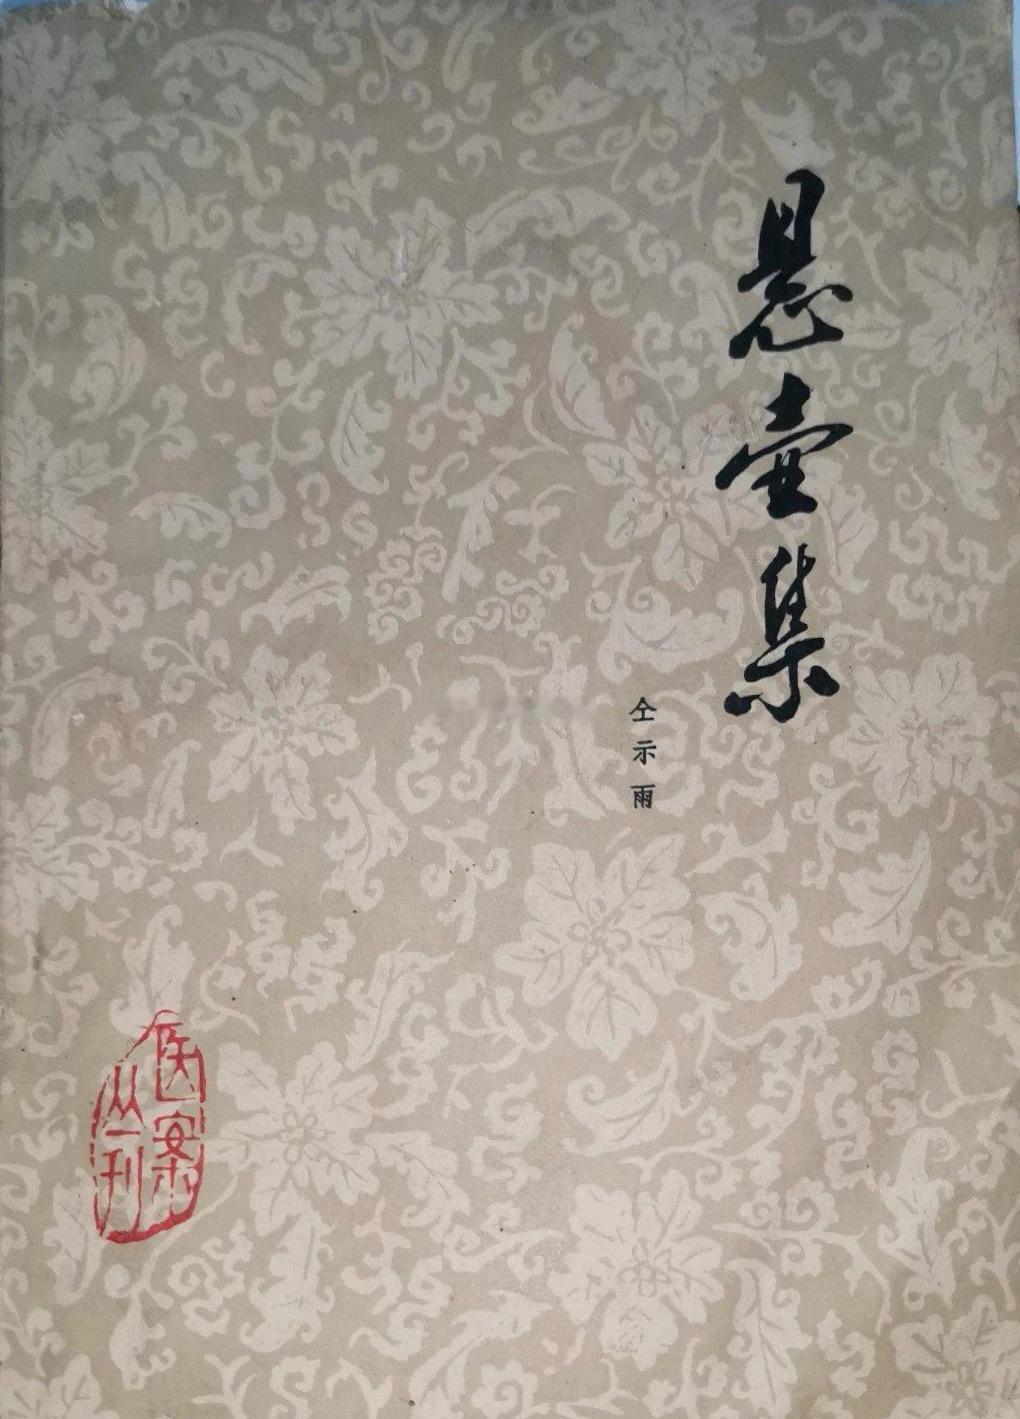 悬壶集
仝示雨
医案
丛刊